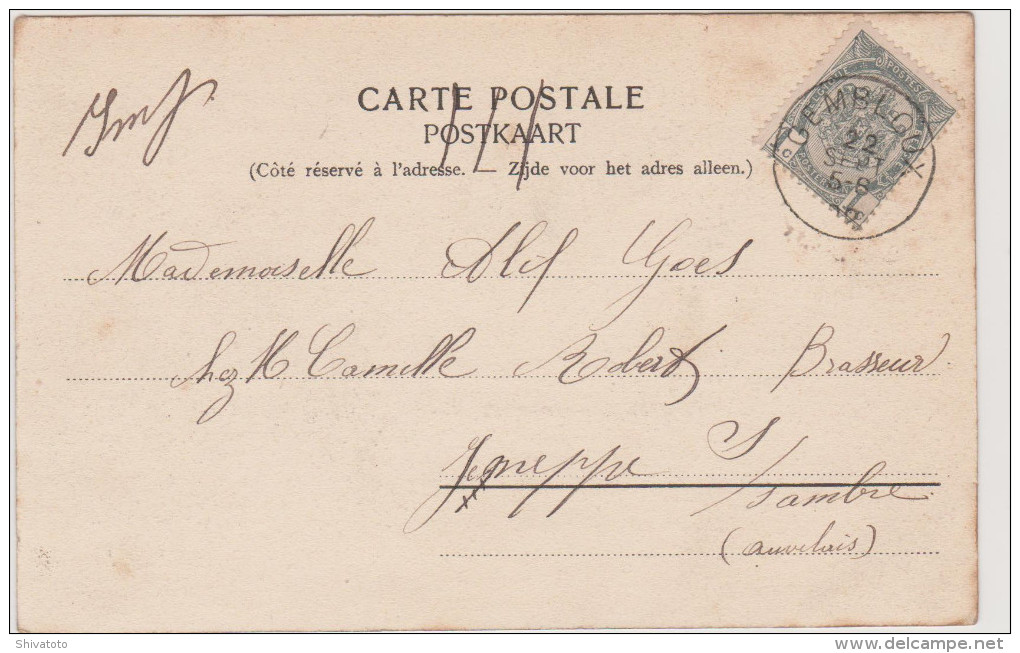 CARTE POSTALE
POSTKAART
(Côté réservé à l'adresse. — Zijde voor het adres alleen.)
GEMBLOUX
22
SEPT
5-6
Mademoiselle Alif Goes
chez M Camille Robert Brasseur
Jemeppe S/Sambre
(Auvelais)
Shivatoto
delcampe.net